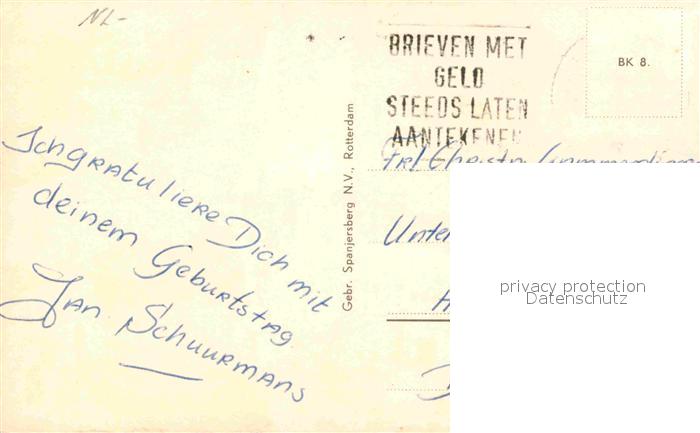 NL-
BRIEVEN MET
GELD
STEEDS LATEN
AANTEKENEN
BK 8.
Gebr. Spanjersberg N.V., Rotterdam
Ich gratuliere Dich mit
deinem Geburtstag
Jan Schuurmans
Frl
Unte
privacy protection
Datenschutz